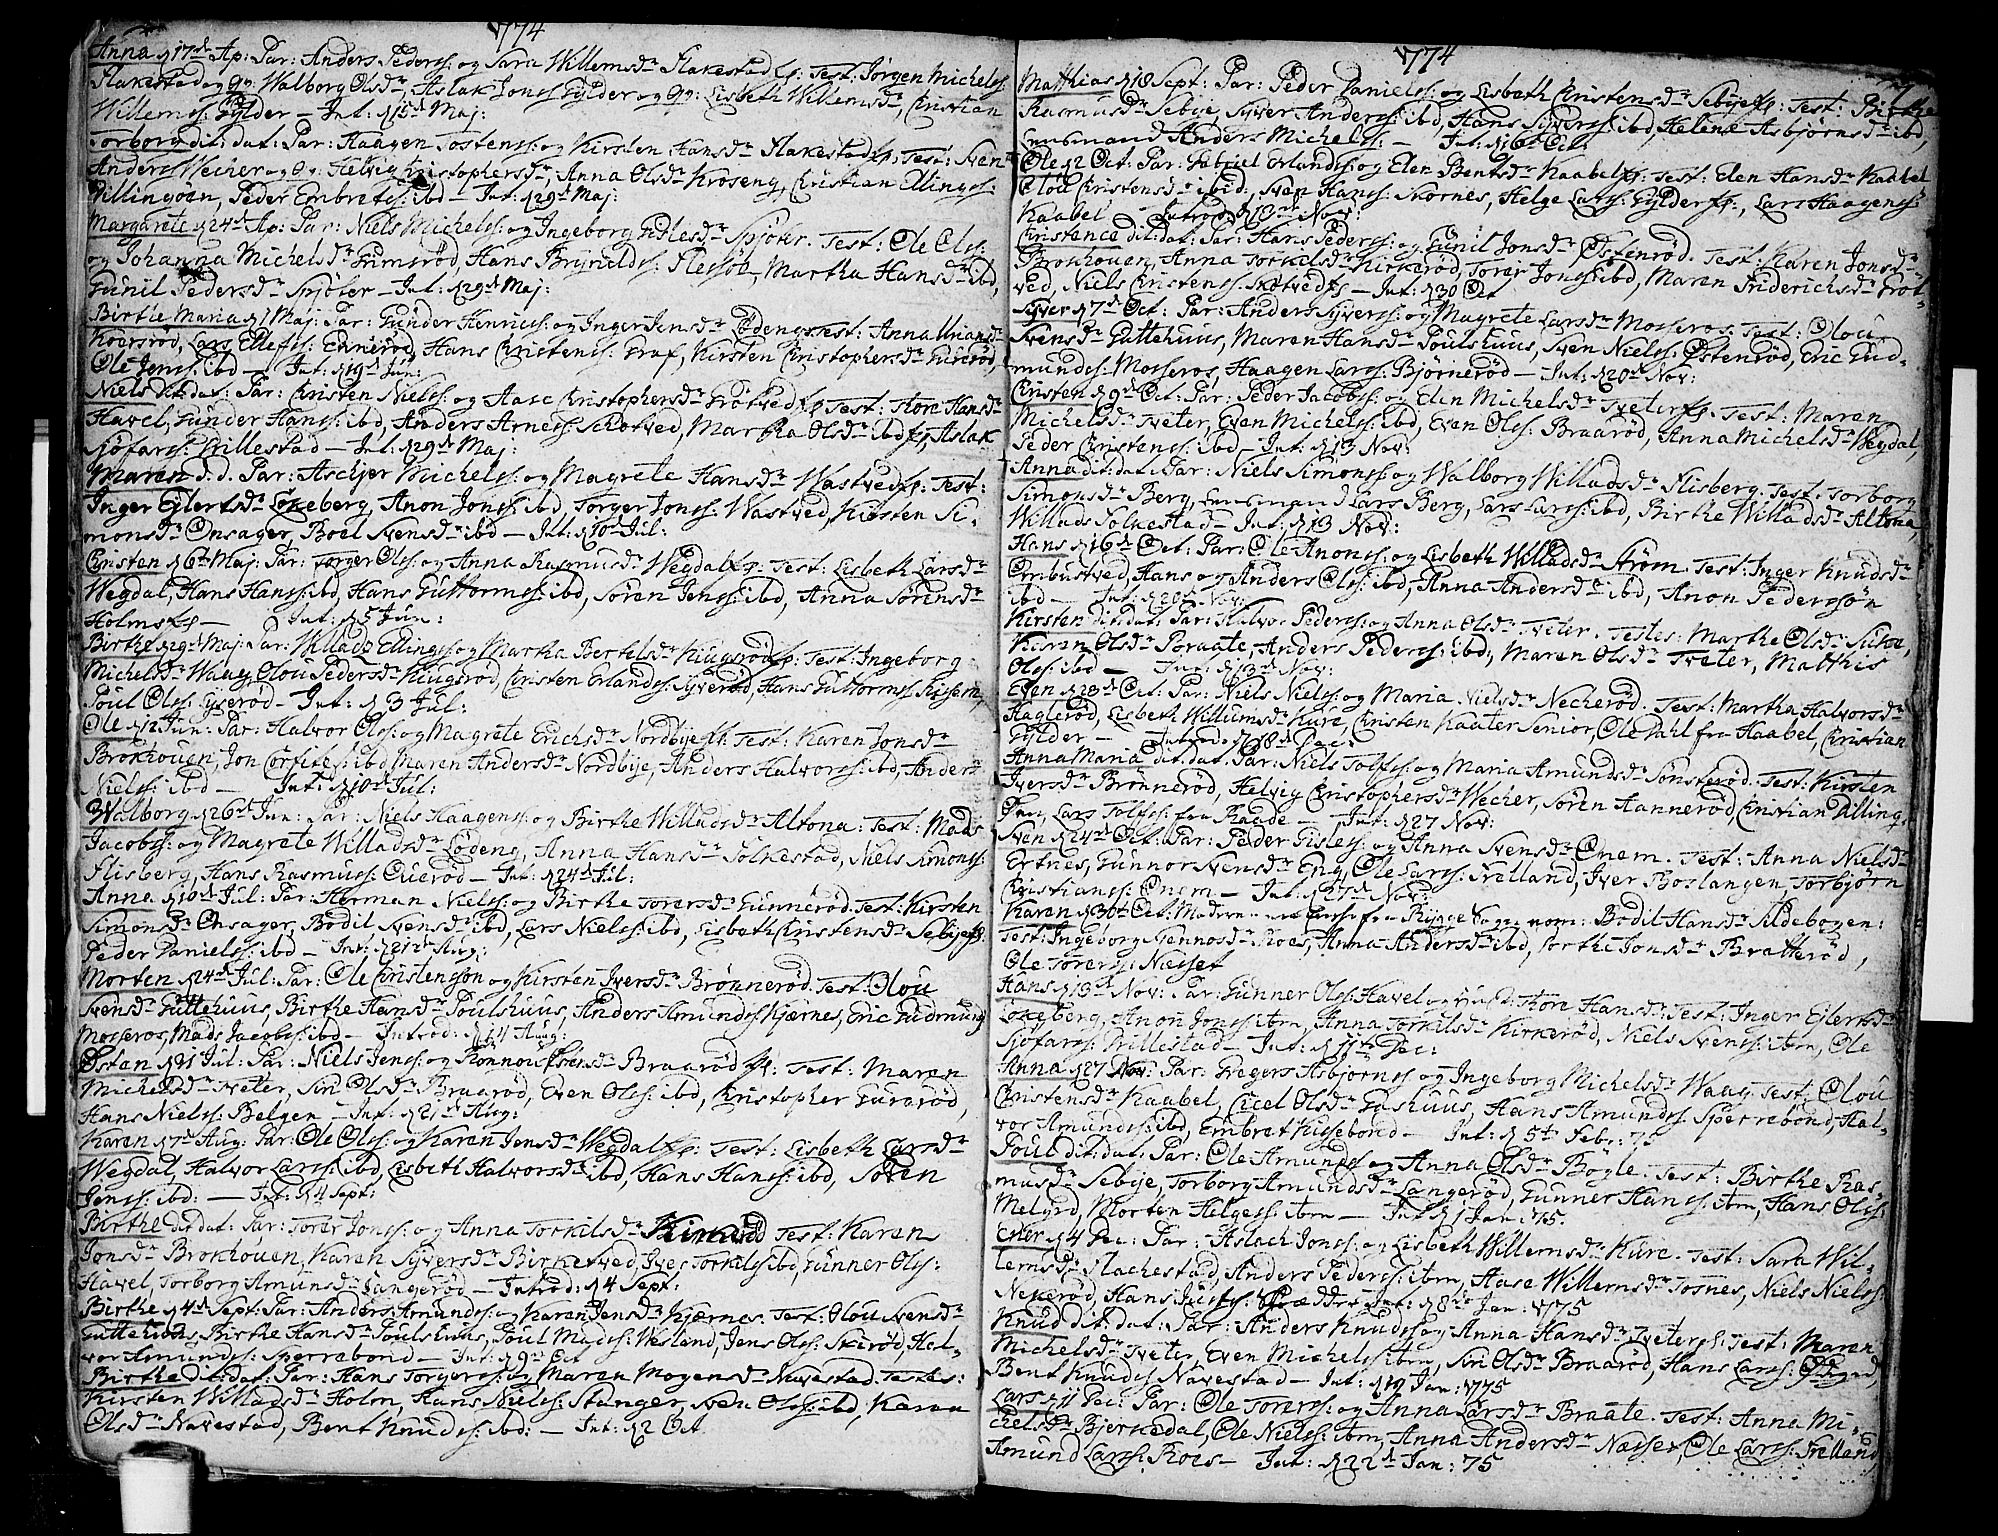 1774
Anna d 17d Ap: Par: Anders Peders: og Sara Willemsdr Flakestad fg: Test: Jørgen Michels:
Flakestad og qv: Walborg Olsdr, Aslak Jons: Gylder og qv: Lisbeth Willemsdr, Christian
Willems: Gylder – Int: d 15d Maj:
Torborg dit: dat: Par: Haagen Tostens: og Kirsten Hansdr Flakestad fg: Test: Sven
Anders: Wecher og qv: Helvig Christophersdr, Anna Olsdr Kroseng, Christian Ellings:
Dillingøen, Peder Embrets: ibd – Int: d 29d Maj:
Margarete d 24d Ap: Par: Niels Michels: og Ingeborg Sdr Spjøter. Test: Ole Ols:
og Johanna Michelsdr Grimsrød, Hans Brynilds: Flessøe, Martha Hansdr ibd,
Gunil Pedersdr Spjøter – Int: d 29d Maj:
Birthe Maria d 1 Maj: Par: Gunder Henrics: og Inger Jensdr Lødeng. Test: Anna Uriansdr
Kaarsrød, Lars Ellefs: Ennerød, Hans Christens: Graf, Kirsten Christophersdr Gurerød,
Ole Jens: ibd – Int: d 19d Jun:
Niels dit: dat: Par: Christen Niels: og Aase Christophersdr Grotved fg Test: Thore Hansdr
Havel, Gunder Hans: ibd, Anders Arnes: Schotved, Martha Olsdr ibd fg, Aslak
Sjøfars: Willestad – Int: d 29d Maj:
Maren d. d. Par: Aschjer Michels: og Magrete Hansdr Wastved fg: Test:
Inger Ejlertsdr Løkeberg, Anon Jons: ibd, Torger Jons: Wastved, Kirsten Si-
monsdr Onsager, Boel Svensdr ibd – Int: d 10d Jul:
Christen d 6d Maj: Par: Torger Ols: og Anna Rasmusdr Wegdal fg: Test: Lisbeth Larsdr
Wegdal, Hans Hans: ibd, Hans Guttorms: ibd, Søren Jens: ibd, Anna Sørensdr
Holms fg – Int: d 5 Jun:
Birthe d 29d Maj: Par: Willads Ellings: og Martha Bertelsdr Kiugsrød fg: Test: Ingeborg
Michelsdr Waag, Olou Pedersdr Kiugsrød, Christen Erlands: Syverød, Hans Guttorms: Kjisern,
Poul Ols: Syverød – Int: d 3 Jul:
Ole d 12 Jun: Par: Halvor Ols: og Magrete Erichsdr Nordbye fg: Test: Karen Jonsdr
Brokhouen, Jon Corfites: ibd, Maren Andersdr Nordbye, Anders Halvors: ibd, Anders
Niels: ibd – Int: d 10d Jul:
Walborg d 26d Jun: Par: Niels Haagens: og Birthe Willadsdr Altona: Test: Mads
Jacobs: og Magrete Willadsdr Lødeng, Anna Hansdr Solkestad, Niels Simons:
Flisberg, Hans Rasmus: Querød – Int: d 24d Jul:
Anne d 10d Jul: Par: Herman Niels: og Birthe Toresdr Gunnerød. Test: Kirsten
Simonsdr Onsager, Bodil Svensdr ibd, Lars Niels: ibd, Lisbeth Christensdr Sebye fg:
Peder Daniels: ibd – Int: d 21d Aug:
Morten d 24d Jul: Par: Ole Christensøn og Kirsten Iversdr Brønnerød. Test: Olou
Svensdr Guttehuus, Birthe Hansdr Poulshuus, Anders Amunds: Kjærnes, Eric Gudmunds:
Mosseros, Mads Jacobs: ibd – Introd: d 14 Aug:
Østan d 31 Jul: Par: Niels Jens: og Ronnou Braarød fg: Test: Maren
Michelsdr Tveter, Siri Olsdr Braarød, Even Ols: ibd, Christopher Gurarød,
Hans Niels: Belgen – Int: d 21d Aug:
Karen d 7d Aug: Par: Ole Ols: og Karen Jensdr Wegdal fg: Test: Lisbeth Larsdr
Wegdal, Halvor Lars: ibd, Lisbeth Halvorsdr ibd, Hans Hans: ibd, Søren
Jens: ibd: – Int: d 4 Sept:
Birthe dit: dat: Par: Torer Jons: og Anna Torkilsdr Kirkerød Test: Karen
Jonsdr Brokhouen, Karen Syversdr Birketved, Iver Torkils: ibd, Gunner Ols:
Havel, Torborg Amundsdr Langerød – Introd: d 4 Sept:
Birthe d 4d Sept: Par: Anders Amunds: og Karen Jensdr Kjærnes. Test: Olou Svensdr
Guttehuus, Birthe Hansdr Poulshuus, Poul Mads: Vesland, Jens Ols: Skirød, Hal-
vor Amunds: Sperrebond – Int: d 9d Oct
Birthe dit: dat: Par: Hans Torgers: og Maren Mogensdr Navestad. Testes:
Kirsten Willadsdr Holm, Hans Niels: Stanger, Sven Ols: ibd, Karen
Olsdr Navestad, Bent Knuds: ibd: – Int: d 2 Oct
1774
Matthias d 18 Sept: Par: Peder Daniels: og Lisbeth Christensdr Sebye fg: Test: Birthe
Rasmusdr Sebye, Syver Anders: ibd, Hans Syvers: ibd, Helene Asbjørnsdr ibd,
Lensmand Anders Michels: – Int: d 16d Oct:
Ole d 2 Oct: Par: Gabriel Erlands: og Elen Bentsdr Kaabel fg: Test: Elen Hansdr Kaabel
Olou Christensdr ibid, Sven Hans: Skornes, Helge Lars: Gylder fg:, Lars Haagens:
Kaabel – Introd: d 13d Nov:
Christence dit: dat: Par: Hans Peders: og Gunil Jonsdr Østenrød. Test: Karen Jonsdr
Brokhouen, Anna Torkilsdr Kirkerød, Torer Jons: ibd, Maren Friderichsdr Grot-
ved, Niels Christens: Skotved fg – Int: d 30 Oct
Syver d 7d Oct: Par: Anders Syvers: og Magrete Larsdr Mosseros. Test: Olou
Svensdr Guttehuus, Maren Hansdr Poulshuus, Sven Niels: Østenrød, Eric Gud-
munds: Mosseros, Haagen Lars: Bjørnerød – Int: d 20d Nov:
Christen d 9d Oct: Par: Peder Jacobs: og Elin Michelsdr Tveter fg. Test: Maren
Michelsdr Tveter, Even Michels: ibd, Even Ols: Braarød, Anna Michelsdr Wegdal,
Peder Christens: ibd – Int: d 13 Nov:
Anna dit: dat: Par: Niels Simons: og Walborg Willadsdr Flisberg. Test: Torborg
Simonsdr Berg, Lensmand Lars Berg, Lars Lars: ibd, Birthe Willadsdr Altona,
Willads Solkestad – Int: d 13 Nov:
Hans d 16d Oct: Par: Ole Anons: og Lisbeth Willadsdr Strøm. Test: Inger Knudsdr
Ombustved, Hans og Anders Ols: ibd, Anna Andersdr ibd, Anon Pedersøn
ibd – Int: d 20d Nov:
Kirsten dit: dat: Par: Halvor Peders: og Anna Olsdr Tveter. Testes: Marthe Olsdr Sukee,
Karen Olsdr Braate, Anders Peders: ibd:, Maren Olsdr Tveter, Matthis
Ols: ibd – Int: d 13d Nov:
Even d 23d Oct: Par: Niels Niels: og Maria Nielsdr Neckerød. Test: Martha Halvorsdr
Haglerød, Lisbeth Willumsdr Kure, Christen Kaater Senior, Ole Dahl fra Kaabel, Christian
Gylder – Introd: d 18d Dec:
Anna Maria dit: dat: Par: Niels Tolfs: og Maria Amundsdr Sønsterød. Test: Kirsten
Iversdr Brønnerød, Helvig Christophersdr Wecher, Søren Hannerød, Christian Dilling-
Øen, Lars Tolfs: fra Raade – Int: d 27 Nov:
Sven d 24d Oct: Par: Peder Gisles: og Anna Svensdr Onem. Test: Anna Nielsdr
Ertnes, Gunnor Svensdr Eng, Ole Lars: Trelland, Iver Boslangen, Torbjørn
Christians: Onem – Int: d 27d Nov:
Karen d 30d Oct: Moderen fra Rygge Sogn nom: Bodil Hansdr Sildebogen:
Test: Ingeborg Roes, Anna Andersdr ibd, Dorthe Jonsdr Bratterød,
Ole Torers: Næsset
Hans d 13d Nov: Par: Gunner Ols: Havel og Thore Hansdr: Test: Inger Ejlertsdr
Løkeberg, Anon Jons: ibm, Anna Torkilsdr Kirkerød, Niels Svens: ibm, Ole
Sjøfars: Willestad – Int: d 11te Dec:
Anna d 27 Nov: Par: Gregers Asbjørns: og Ingeborg Michelsdr Waag. Test: Olou
Christensdr Kaabel, Cicel Olsdr Gashuus, Hans Amunds: Sperrebond, Hal-
vor Amunds: ibd, Embret Kissebond – Int: d 5te Febr: 75
Poul dit: dat: Par: Ole Amunds: og Anna Olsdr Bøgle. Test: Birthe Ras-
musdr Sebije, Torborg Amundsdr Langerød, Gunner Hans: ibm, Hans Ols:
Melgrd, Morten Helges: ibm – Int: d 1 Jan: 75.
Ester d 4 Dec: Par: Aslach Jons: og Lisbeth Willemsdr Kure. Test: Sara Wil-
lemsdr Flachestad, Anders Peders: ibm, Aase Willemsdr Tosnes, Niels Niels:
Nekerød, Hans Int: d 8de Jan: 1775
Knud dit: dat: Par: Anders Knuds: og Anna Hansdr Tveter fg: Test: Maren
Michelsdr Tveter, Even Michels: ibm, Siri Olsdr Braarød, Hans Lars:
Bent Knuds: Navestad – Int: d 19 Jan: 1775
Lars d 11 Dec: Par: Ole Torers: og Anna Larsdr Braate. Test: Anna Mi-
chelsdr Bjørkedal, Ole Niels: ibm, Anna Andersdr Næsset, Ole Lars: Trelland,
Amund Lars: Roes – Int: d 22d Jan: 75
6